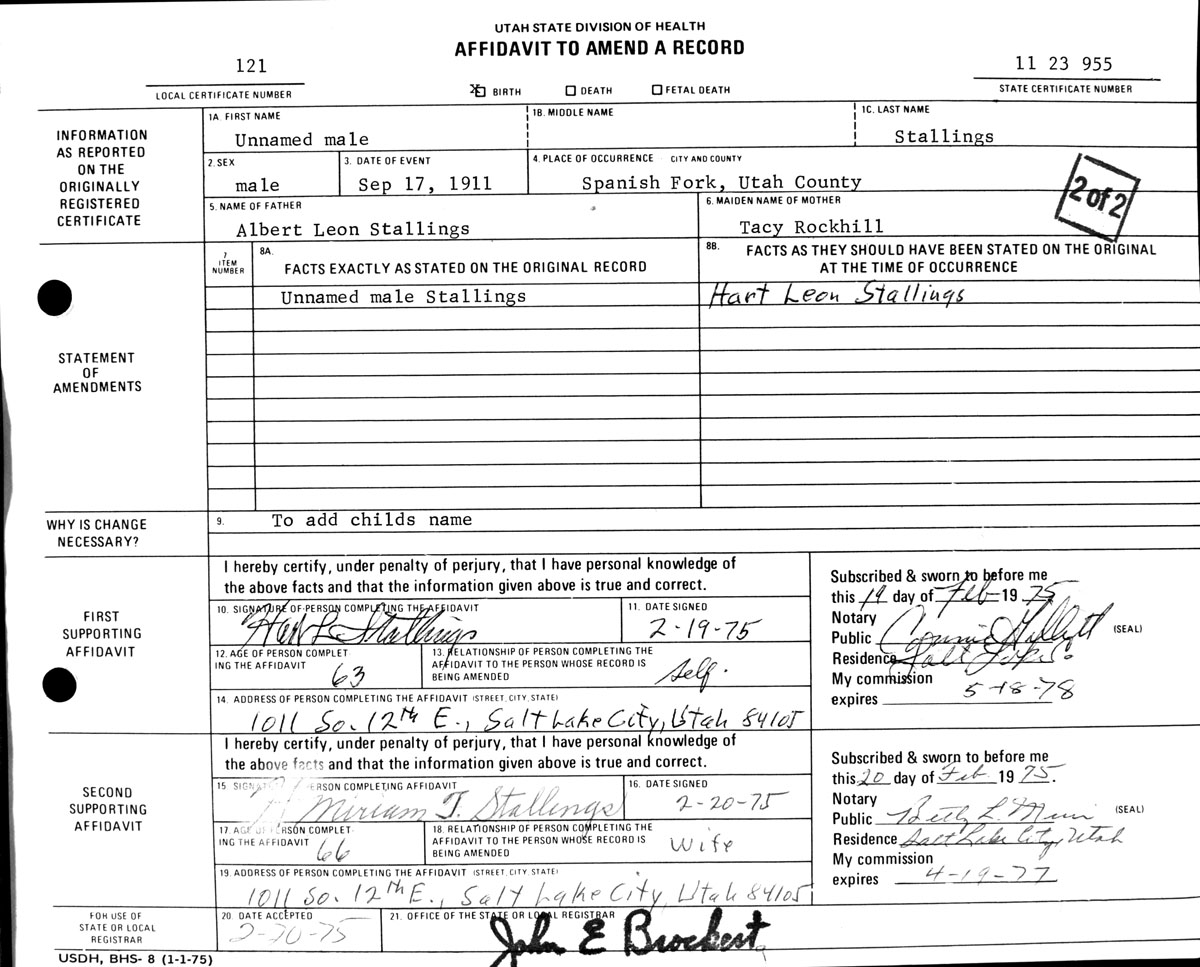 UTAH STATE DIVISION OF HEALTH
AFFIDAVIT TO AMEND A RECORD
121
LOCAL CERTIFICATE NUMBER
X BIRTH DEATH FETAL DEATH
11 23 955
STATE CERTIFICATE NUMBER
INFORMATION AS REPORTED ON THE ORIGINALLY REGISTERED CERTIFICATE
1A. FIRST NAME 1B. MIDDLE NAME 1C. LAST NAME
Unnamed male Stallings
2. SEX 3. DATE OF EVENT 4. PLACE OF OCCURRENCE CITY AND COUNTY
male Sep 17, 1911 Spanish Fork, Utah County
2 of 2
5. NAME OF FATHER 6. MAIDEN NAME OF MOTHER
Albert Leon Stallings Tacy Rockhill
STATEMENT OF AMENDMENTS
7 ITEM NUMBER
8A. FACTS EXACTLY AS STATED ON THE ORIGINAL RECORD
8B. FACTS AS THEY SHOULD HAVE BEEN STATED ON THE ORIGINAL
AT THE TIME OF OCCURRENCE
Unnamed male Stallings Hart Leon Stallings
WHY IS CHANGE NECESSARY?
9. To add childs name
FIRST SUPPORTING AFFIDAVIT
I hereby certify, under penalty of perjury, that I have personal knowledge of
the above facts and that the information given above is true and correct.
10. SIGNATURE OF PERSON COMPLETING THE AFFIDAVIT 11. DATE SIGNED
Hart L Stallings 2-19-75
12. AGE OF PERSON COMPLETING THE AFFIDAVIT 63
13. RELATIONSHIP OF PERSON COMPLETING THE
AFFIDAVIT TO THE PERSON WHOSE RECORD IS
BEING AMENDED Self.
14. ADDRESS OF PERSON COMPLETING THE AFFIDAVIT (STREET, CITY, STATE)
1011 So. 12th E., Salt Lake City, Utah 84105
Subscribed & sworn to before me
this 19 day of Feb 19 75
Notary
Public Connie (SEAL)
Residence Salt Lake
My commission
expires 5-18-78
SECOND SUPPORTING AFFIDAVIT
I hereby certify, under penalty of perjury, that I have personal knowledge of
the above facts and that the information given above is true and correct.
15 PERSON COMPLETING AFFIDAVIT 16. DATE SIGNED
Miriam T. Stallings 2-20-75
17. AGE OF PERSON COMPLETING THE AFFIDAVIT 66
18. RELATIONSHIP OF PERSON COMPLETING THE
AFFIDAVIT TO THE PERSON WHOSE RECORD IS
BEING AMENDED Wife
19. ADDRESS OF PERSON COMPLETING THE AFFIDAVIT (STREET, CITY, STATE)
1011 So. 12th E., Salt Lake City, Utah 84105
Subscribed & sworn to before me
this 20 day of Feb 19 75.
Notary
Public Betty L. (SEAL)
Residence Salt Lake City, Utah
My commission
expires 4-19-77
FOR USE OF STATE OR LOCAL REGISTRAR
20. DATE ACCEPTED 21. OFFICE OF THE STATE OR LOCAL REGISTRAR
2-20-75 John E Brockert
USDH, BHS- 8 (1-1-75)